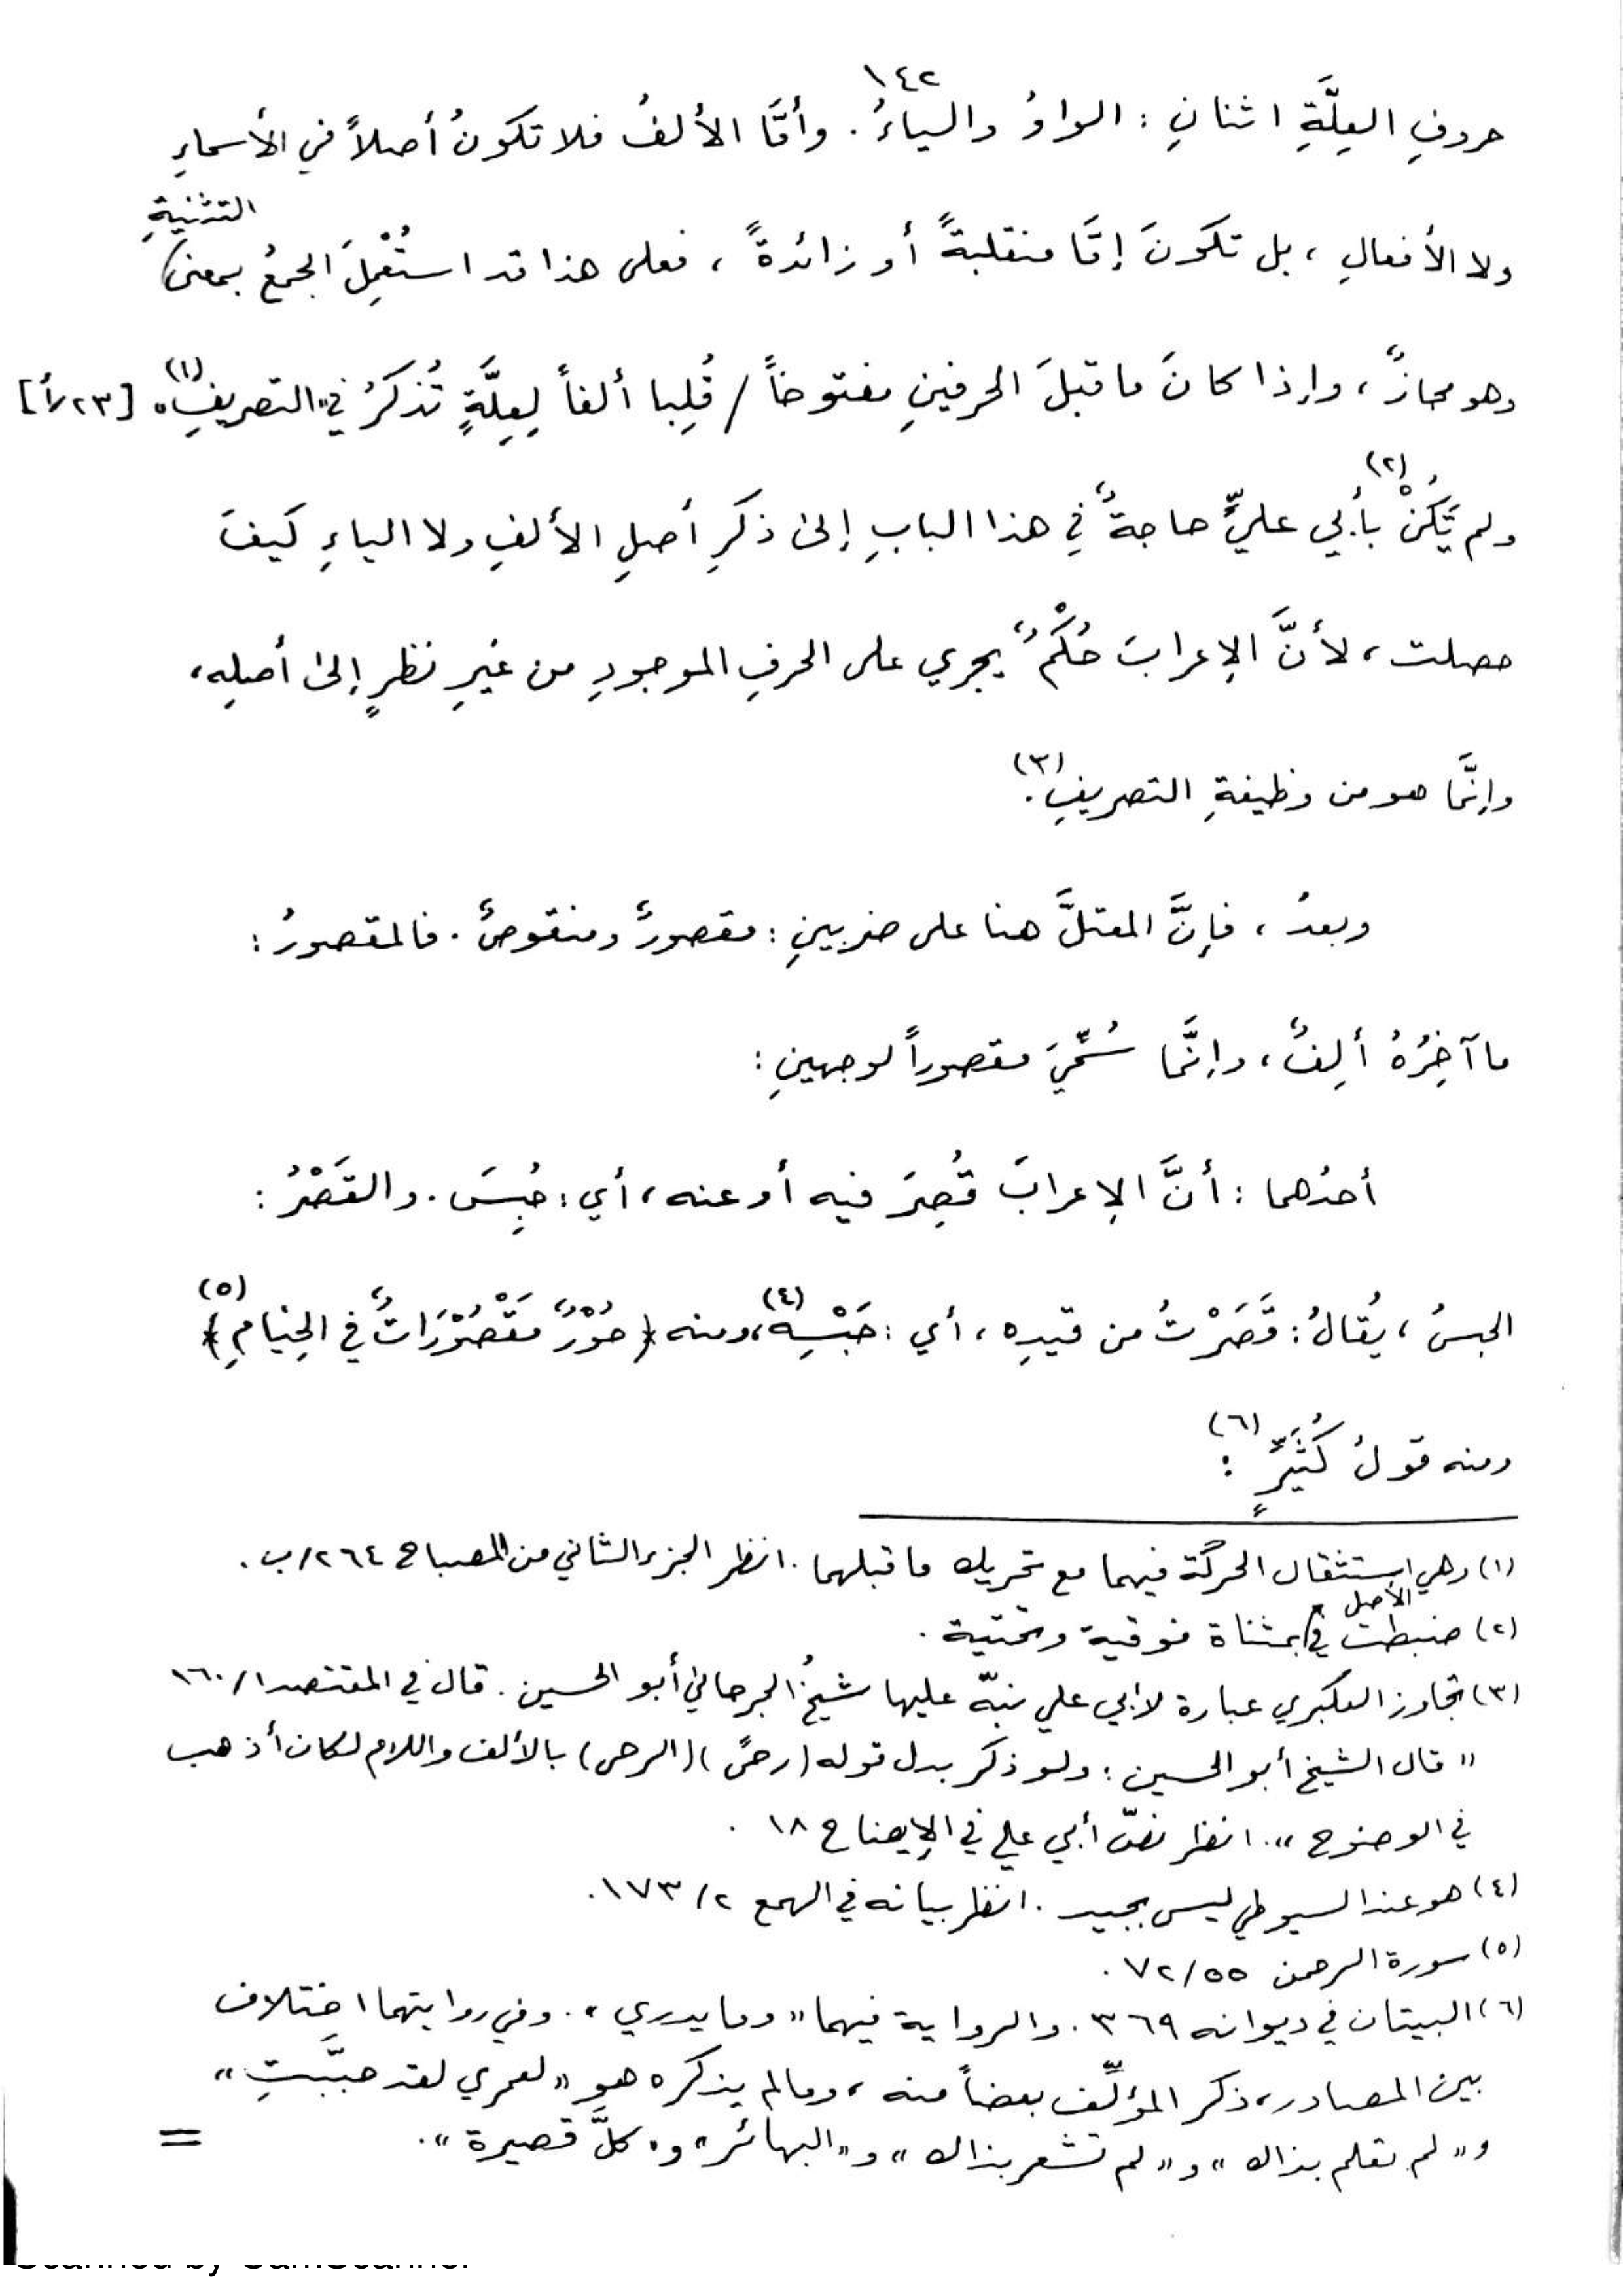 ١٤٢
حروفِ العِلَّةِ اثنانِ : الواوُ والياءُ . وأمَّا الألفُ فلا تكونُ أصلاً في الأسماءِ
ولا الأفعالِ ، بل تكونَ إمَّا منقلبةً أو زائدةً ، فعلى هذا قد استُعْمِلَ الجمعُ بمعنى التثنيةِ
وهو مجازٌ ، وإذا كانَ ما قبلَ الحرفينِ مفتوحاً / قُلِبا ألفاً لِعِلَّةٍ تُذكَرُ في "التصريفِ(١)" . [٢٣/أ]
ولم يَكُنْ(٢) بأبي عليٍّ حاجةٌ في هذا البابِ إلى ذكرِ أصلِ الألفِ ولا الياءِ كيفَ
حصلت ، لأنَّ الإعرابَ حُكْمٌ يجري على الحرفِ الموجودِ من غيرِ نظرٍ إلى أصلِه ،
وإنَّما هو من وظيفةِ التصريفِ(٣) .
وبعدُ ، فإنَّ المعتلَّ هنا على ضربينِ : مقصورٌ ومنقوصٌ . فالمقصورُ :
ما آخِرُهُ ألِفٌ ، وإنَّما سُمِّيَ مقصوراً لوجهينِ :
أحدُهما : أنَّ الإعرابَ قُصِرَ فيه أو عنه ، أي : حُبِسَ . والقَصْرُ :
الحبسُ ، يُقالُ : قَصَرْتُ من قيدِه ، أي : حَبْسِه(٤) ، ومنه ﴿ حُوْرٌ مَقْصُوْرَاتٌ في الخِيامِ ﴾(٥)
ومنه قولُ كُثَيِّرٍ(٦) :
(١) وهي استثقال الحركة فيهما مع تحريك ما قبلهما . انظر الجزء الثاني من المصباح ٢٦٤/ب .
(٢) ضبطت في الأصل بمثناة فوقية وتحتية .
(٣) تجاوز العكبري عبارة لأبي علي نبّه عليها شيخُ الجرجاني أبو الحسين . قال في المقتصد ١/١٦٠
" قال الشيخ أبو الحسين : ولو ذكر بدل قوله (رحىً) (الرحى) بالألف واللام لكان أذهب
في الوضوح " . انظر نصّ أبي علي في الإيضاح ١٨ .
(٤) هو عند السيوطي ليس بجيد . انظر بيانه في الهمع ٢/١٧٣ .
(٥) سورة الرحمن ٥٥/٧٢ .
(٦) البيتان في ديوانه ٣٦٩ . والرواية فيهما " وما يدري " . وفي روايتهما اختلاف
بين المصادر ، ذكر المؤلِّف بعضاً منه ، ومالم يذكره هو " لعمري لقد حبَّبتِ "
و " لم تعلم بذاك " و " لم تشعر بذاك " و " البهائر " و " كلَّ قصيرة " . =
Scanned by CamScanner